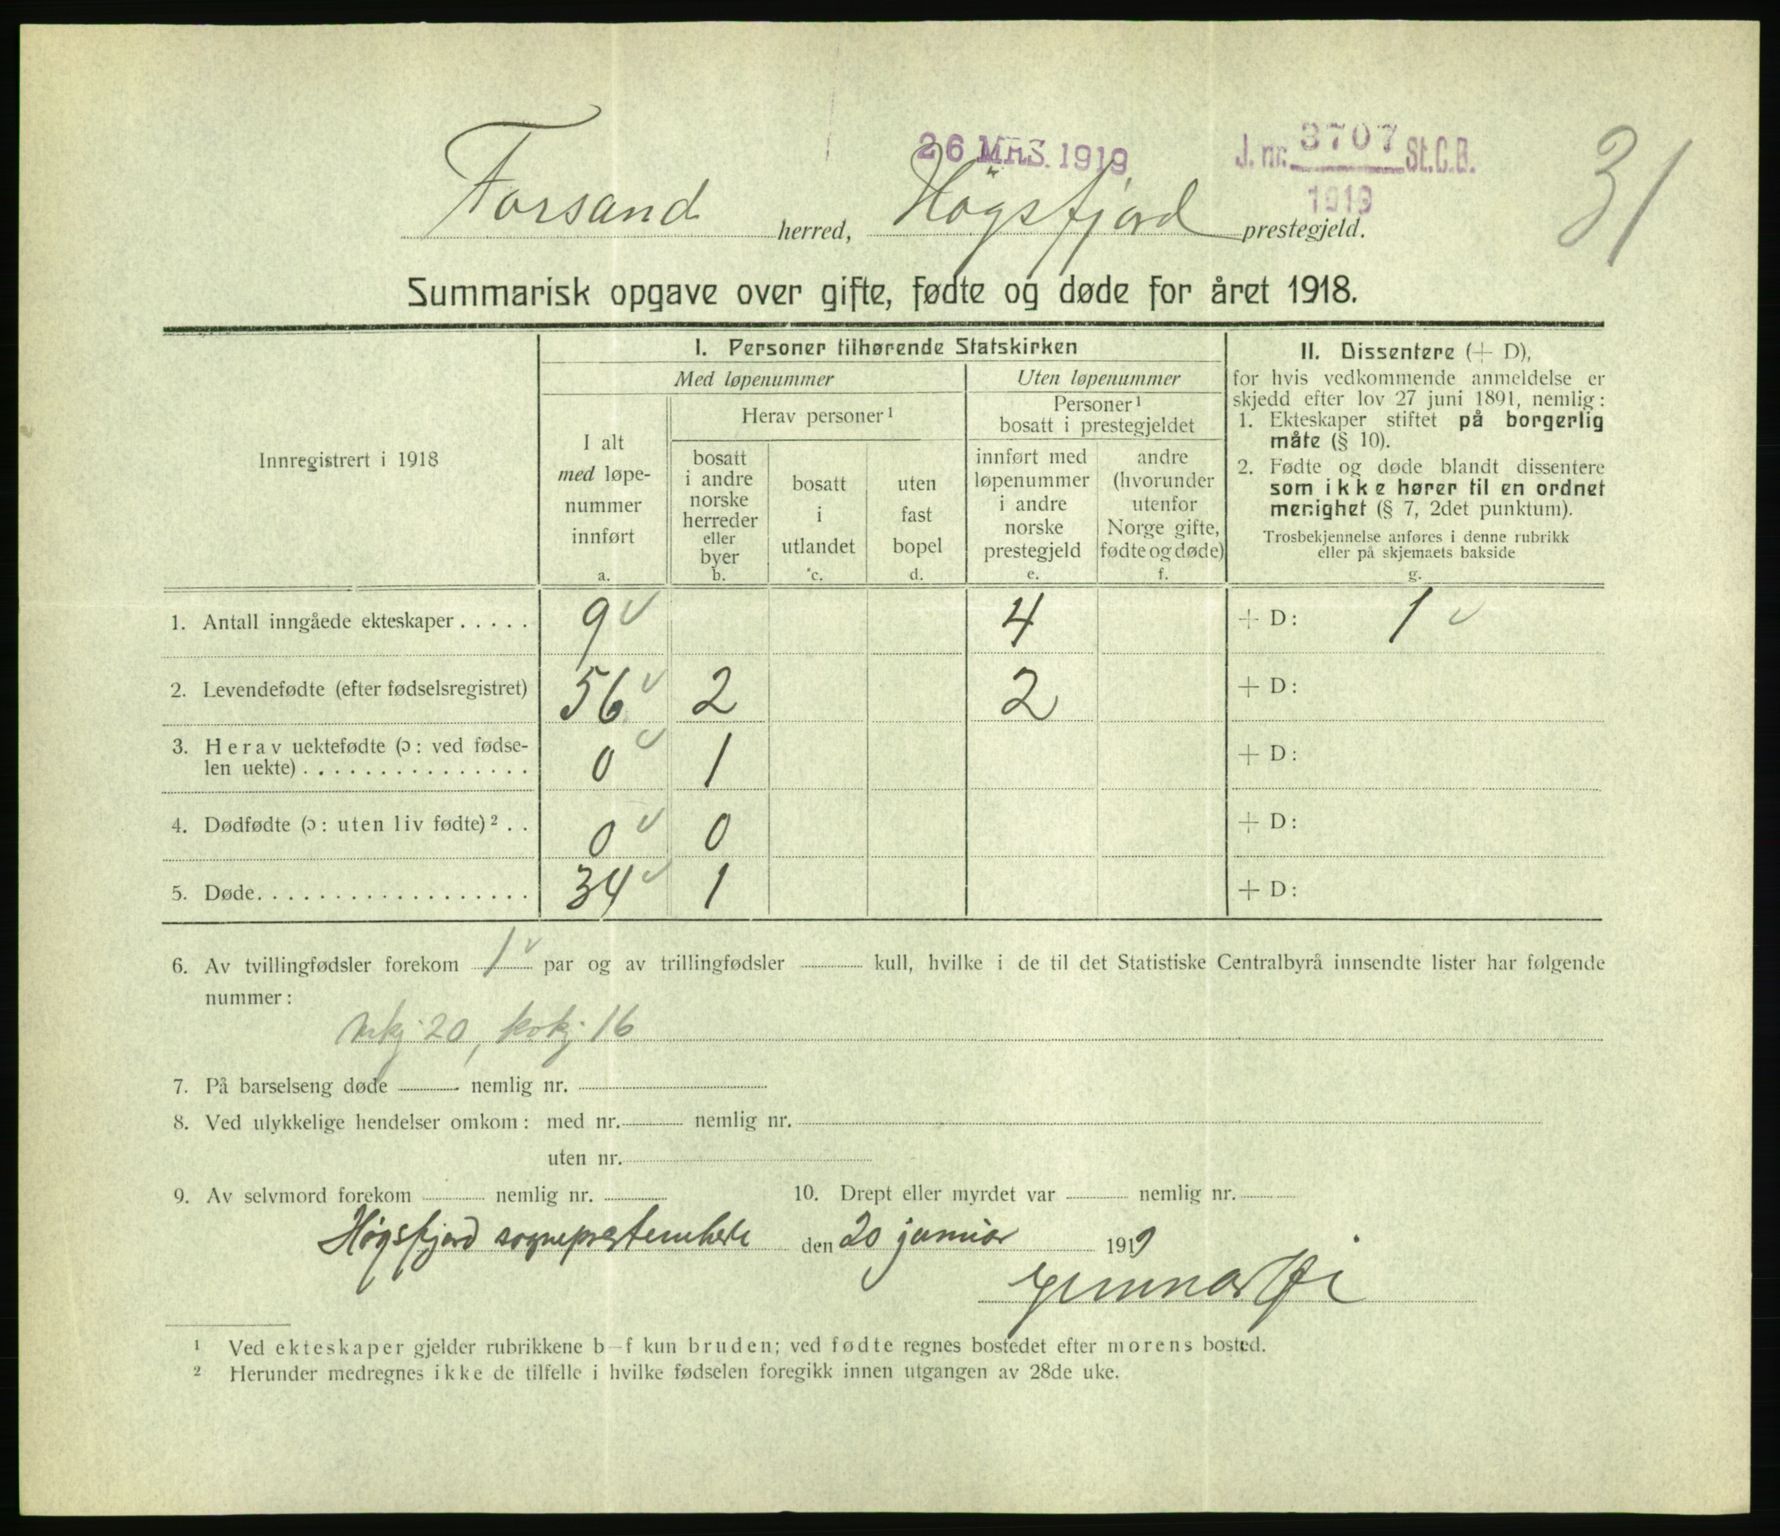 26 MRS. 1919
J. nr. 3707 St.C.B.
1919
31
Forsand herred, Høgsfjord prestegjeld.
Summarisk opgave over gifte, fødte og døde for året 1918.
Innregistrert i 1918
I. Personer tilhørende Statskirken
Med løpenummer
Uten løpenummer
I alt
med løpe-
nummer
innført
a.
Herav personer¹
bosatt
i andre
norske
herreder
eller
byer
b.
bosatt
i
utlandet
c.
uten
fast
bopel
d.
Personer¹
bosatt i prestegjeldet
innført med
løpenummer
i andre
norske
prestegjeld
e.
andre
(hvorunder
utenfor
Norge gifte,
fødte og døde)
f.
II. Dissentere (+ D),
for hvis vedkommende anmeldelse er
skjedd efter lov 27 juni 1891, nemlig:
1. Ekteskaper stiftet på borgerlig
måte (§ 10).
2. Fødte og døde blandt dissentere
som ikke hører til en ordnet
menighet (§ 7, 2det punktum).
Trosbekjennelse anføres i denne rubrikk
eller på skjemaets bakside
g.
1. Antall inngåede ekteskaper . . . . . 9 4 + D: 1
2. Levendefødte (efter fødselsregistret) 56 2 2 + D:
3. Herav uektefødte (ɔ: ved fødse-
len uekte) . . . . . . . . . . . . . . . 0 1 + D:
4. Dødfødte (ɔ: uten liv fødte)² . . 0 0 + D:
5. Døde. . . . . . . . . . . . . . . . . . 34 1 + D:
6. Av tvillingfødsler forekom 1 par og av trillingfødsler kull, hvilke i de til det Statistiske Centralbyrå innsendte lister har følgende
nummer:
mkj 20, kvkj 16
7. På barselseng døde nemlig nr.
8. Ved ulykkelige hendelser omkom: med nr. nemlig nr.
uten nr.
9. Av selvmord forekom nemlig nr. 10. Drept eller myrdet var nemlig nr.
Høgsfjord sogneprestembede den 20 januar 1919
Gunnar Øi
¹ Ved ekteskaper gjelder rubrikkene b–f kun bruden; ved fødte regnes bostedet efter morens bosted.
² Herunder medregnes ikke de tilfelle i hvilke fødselen foregikk innen utgangen av 28de uke.